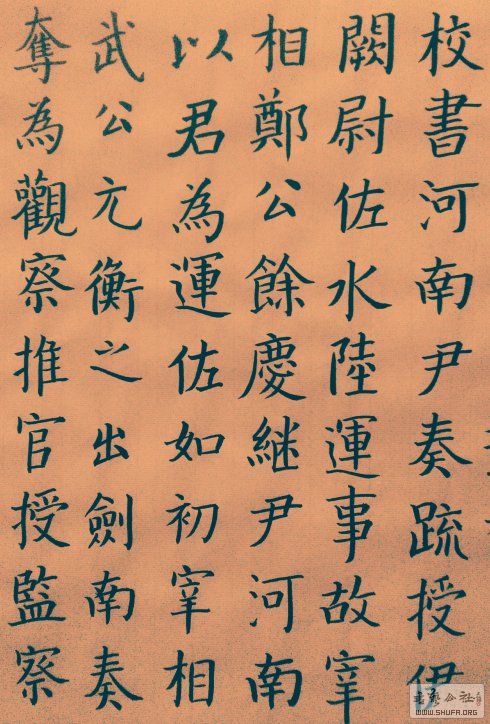 校書河南尹奏疏授伊
闕尉佐水陸運事故宰
相鄭公餘慶継尹河南
以君為運佐如初宰相
武公元衡之出劍南奏
奪為觀察推官授監察
書藝公社
WWW.SHUFA.ORG